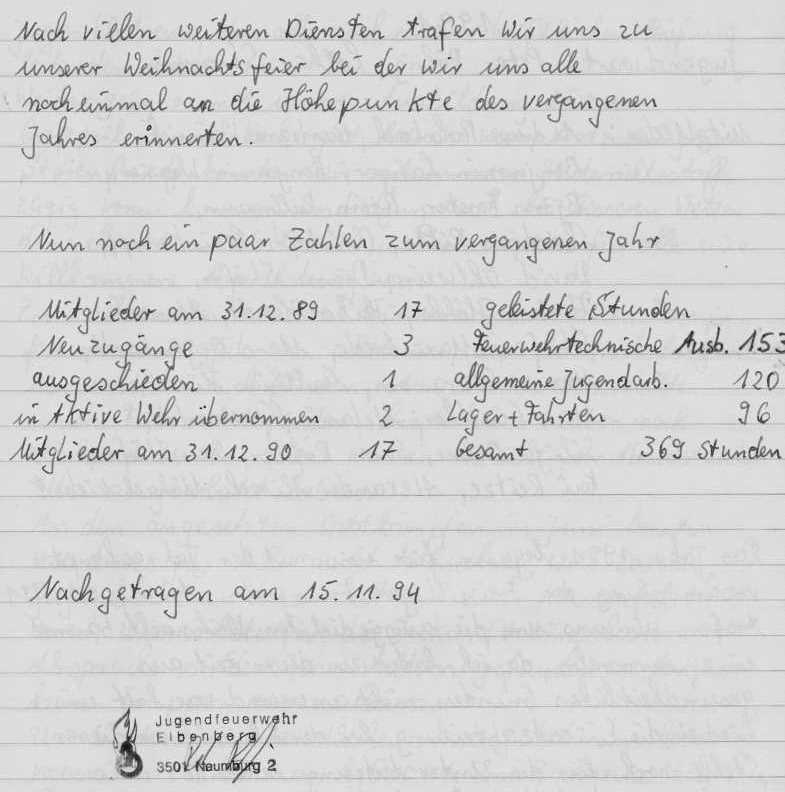 Nach vielen weiteren Diensten trafen wir uns zu
unserer Weihnachtsfeier bei der wir uns alle
noch einmal an die Höhepunkte des vergangenen
Jahres erinnerten.
Nun noch ein paar Zahlen zum vergangenen Jahr
Mitglieder am 31.12.89 17 geleistete Stunden
Neuzugänge 3 Feuerwehrtechnische Ausb. 153
ausgeschieden 1 allgemeine Jugendarb. 120
in Aktive Wehr übernommen 2 Lager + Fahrten 96
Mitglieder am 31.12.90 17 Gesamt 369 Stunden
Nachgetragen am 15.11.94
Jugendfeuerwehr
Elbenberg
3501 Naumburg 2